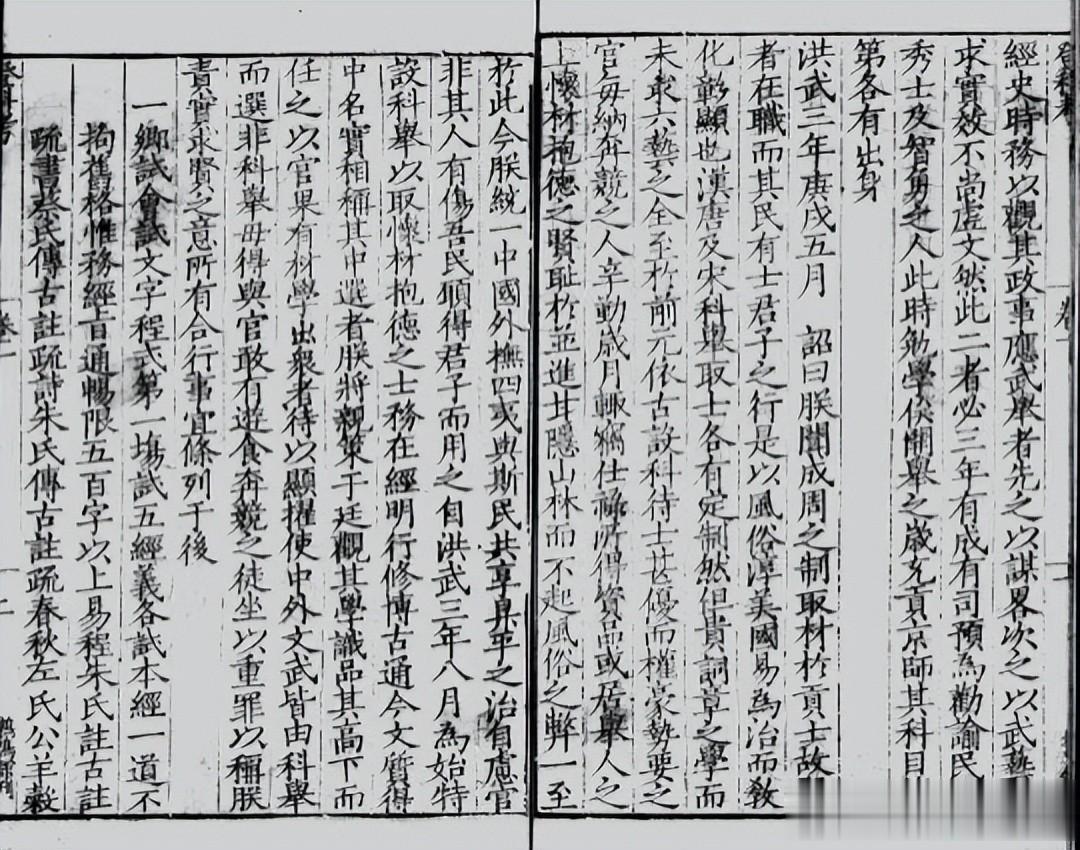 經史時務以觀其政事應武舉者先之以謀畧次之以武藝
求實效不尚虛文然此二者必三年有成有司預為勸諭民
秀士及智勇之人此時勉學俟開舉之歲充貢京師其科目
第各有出身
洪武三年庚戌五月 詔曰朕聞成周之制取材於貢士故
者在職而其民有士君子之行是以風俗淳美國易為治而敎
化彰顯也漢唐及宋科舉取士各有定制然但貴詞章之學而
未求六藝之全至於前元依古設科待士甚優而權豪勢要之
官每納奔競之人辛勤歲月輒竊仕祿所得資品或居舉人之
上懷材抱德之賢恥於並進甘隱山林而不起風俗之弊一至
於此今朕統一中國外撫四夷與斯民共享昇平之治所慮官
非其人有傷吾民願得君子而用之自洪武三年八月為始特
設科舉以取懷材抱德之士務在經明行修博古通今文質得
中名實相稱其中選者朕將親策于廷觀其學識品其高下而
任之以官果有材學出衆者待以顯擢使中外文武皆由科舉
而選非科舉毋得與官敢有遊食奔競之徒坐以重罪以稱朕
責實求賢之意所有合行事宜條列于後
一鄉試會試文字程式第一塲試五經義各試本經一道不
拘舊格惟務經旨通暢限五百字以上易程朱氏註古註
疏書蔡氏傳古註疏詩朱氏傳古註疏春秋左氏公羊穀
卷一
二